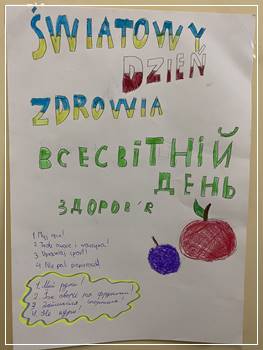 ŚWIATOWY
DZIEŃ
ZDROWIA
ВСЕСВІТНІЙ
ДЕНЬ
ЗДОРОВ'Я
1. Myj ręce!
2. Jedz owoce i warzywa!
3. Uprawiaj sport!
4. Nie pal papierosów!
1. Мий руки!
2. Їж овочі та фрукти!
3. Займайся спортом!
4. Не кури!